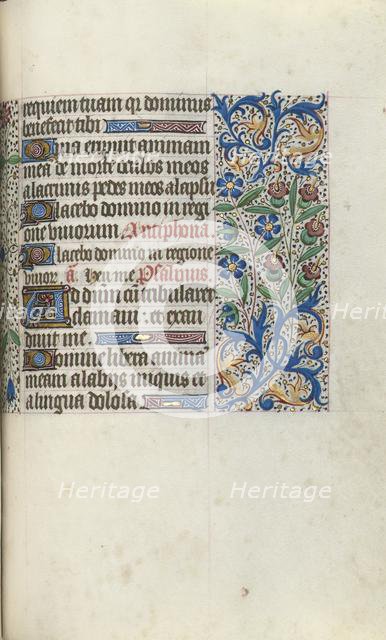 requiem tuam qr dominus
benefecit tibi
Quia eripuit animam
mea de morte oculos meos
a lacrimis pedes meos a lapsu
Placebo domino in regi
one vivorum Antiphona
Placebo domino in regione
vivor a Heu me Psalmus
Ad dnm cu tribularer
clamavi et exau
divit me
Domine libera anima
meam a labiis iniquis et
a lingua dolosa
Heritage Heritage
Heritage Heritage
Heritage Heritage